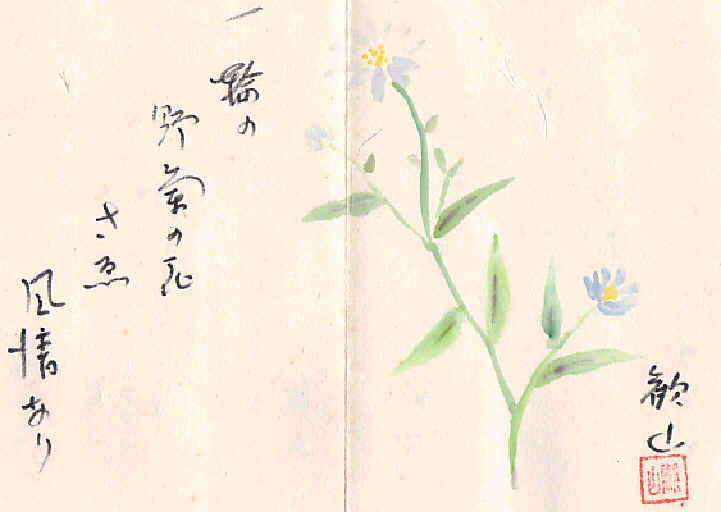 一輪の
野菊の花
さゑ
風情あり
歓山